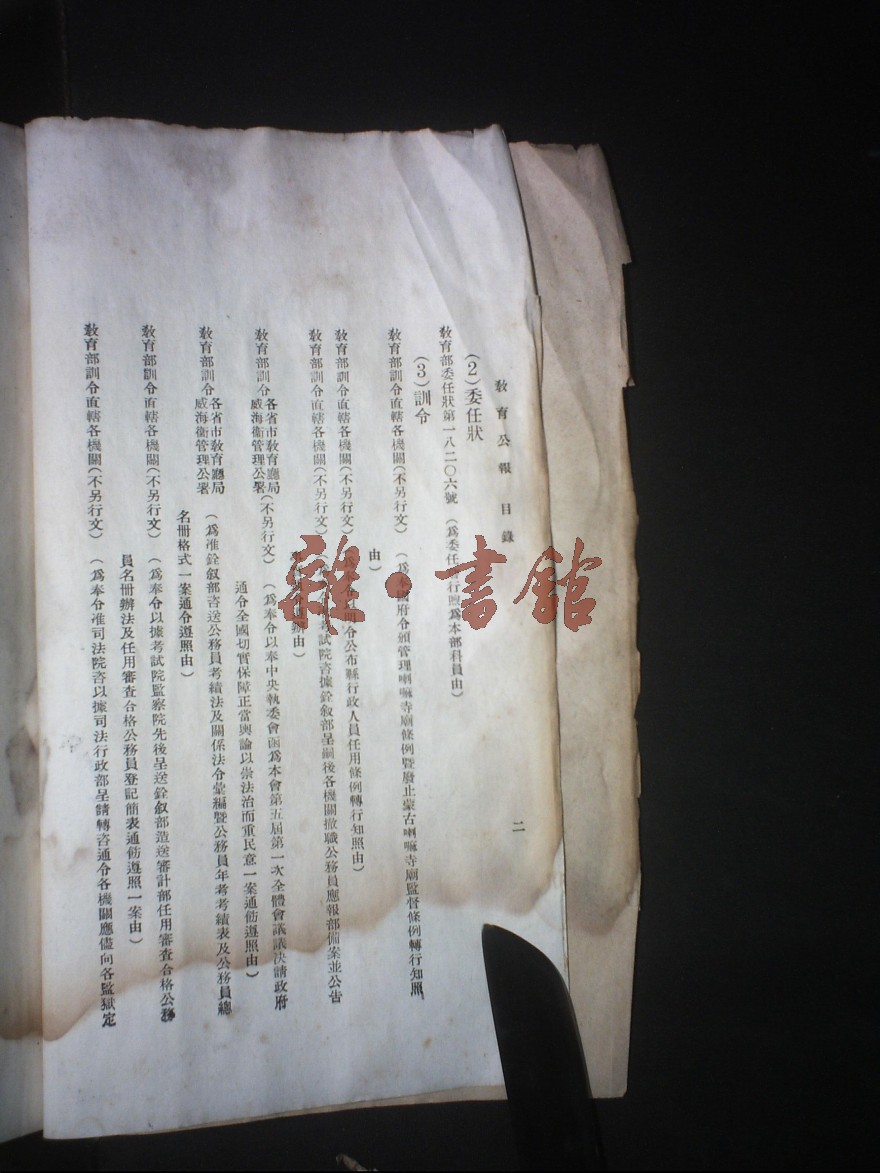 教育公報目錄
二
(2)委任狀
教育部委任狀第一八二〇六號 (爲委任 行照爲本部科員由)
(3)訓令
教育部訓令直轄各機關(不另行文) (爲 府令頒管理喇嘛寺廟條例暨廢止蒙古喇嘛寺廟監督條例轉行知照
由)
教育部訓令直轄各機關(不另行文) 令公布縣行政人員任用條例轉行知照由)
教育部訓令直轄各機關(不另行文) 試院咨據銓叙部呈嗣後各機關撤職公務員應報部備案並公告
由)
教育部訓令各省市教育廳局威海衞管理公署(不另行文) (爲奉令以奉中央執委會函爲本會第五屆第一次全體會議議决請政府
通令全國切實保障正當輿論以崇法治而重民意一案通飭遵照由)
教育部訓令各省市教育廳局威海衞管理公署 (爲准銓叙部咨送公務員考績法及關係法令彙編暨公務員年考考績表及公務員總
名冊格式一案通令遵照由)
教育部訓令直轄各機關(不另行文) (爲奉令以據考試院監察院先後呈送銓叙部造送審計部任用審查合格公務
員名冊辦法及任用審查合格公務員登記簡表通飭遵照一案由)
教育部訓令直轄各機關(不另行文) (爲奉令准司法院咨以據司法行政部呈請轉咨通令各機關應儘向各監獄定
雜·書館